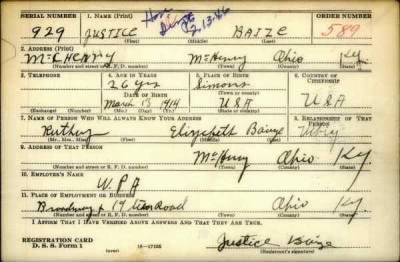 SERIAL NUMBER 1. NAME (Print) ORDER NUMBER
929 JUSTICE BAIZE 589
(First) (Middle) (Last)
12-13-46
2. ADDRESS (Print)
McHENRY McHenry Ohio Ky.
(Number and street or R. F. D. number) (Town) (County) (State)
3. TELEPHONE 4. AGE IN YEARS 5. PLACE OF BIRTH 6. COUNTRY OF CITIZENSHIP
26 yrs Simons
DATE OF BIRTH (Town or county)
March 13 1914 USA USA
(Exchange) (Number) (Mo.) (Day) (Yr.) (State or country)
7. NAME OF PERSON WHO WILL ALWAYS KNOW YOUR ADDRESS 8. RELATIONSHIP OF THAT PERSON
Elizabeth Baize
(Mr., Mrs., Miss) (First) (Middle) (Last)
9. ADDRESS OF THAT PERSON
McHenry Ohio Ky.
(Number and street or R. F. D. number) (Town) (County) (State)
10. EMPLOYER'S NAME
W.P.A
11. PLACE OF EMPLOYMENT OR BUSINESS
Broadway Road Ohio Ky.
(Number and street or R. F. D. number) (Town) (County) (State)
I AFFIRM THAT I HAVE VERIFIED ABOVE ANSWERS AND THAT THEY ARE TRUE.
REGISTRATION CARD
D. S. S. Form 1 (over) 16-17105 Justice Baize
(Registrant's signature)